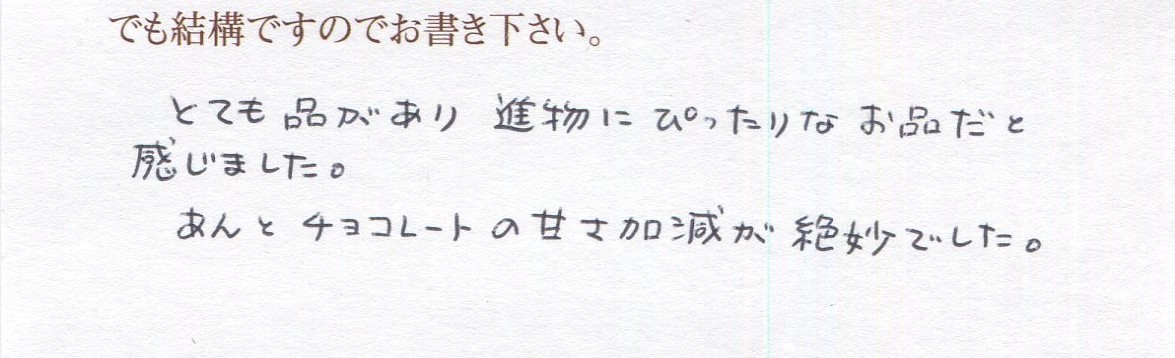 でも結構ですのでお書き下さい。
とても品があり 進物にぴったりな お品だと
感じました。
あんとチョコレートの甘さ加減が 絶妙でした。